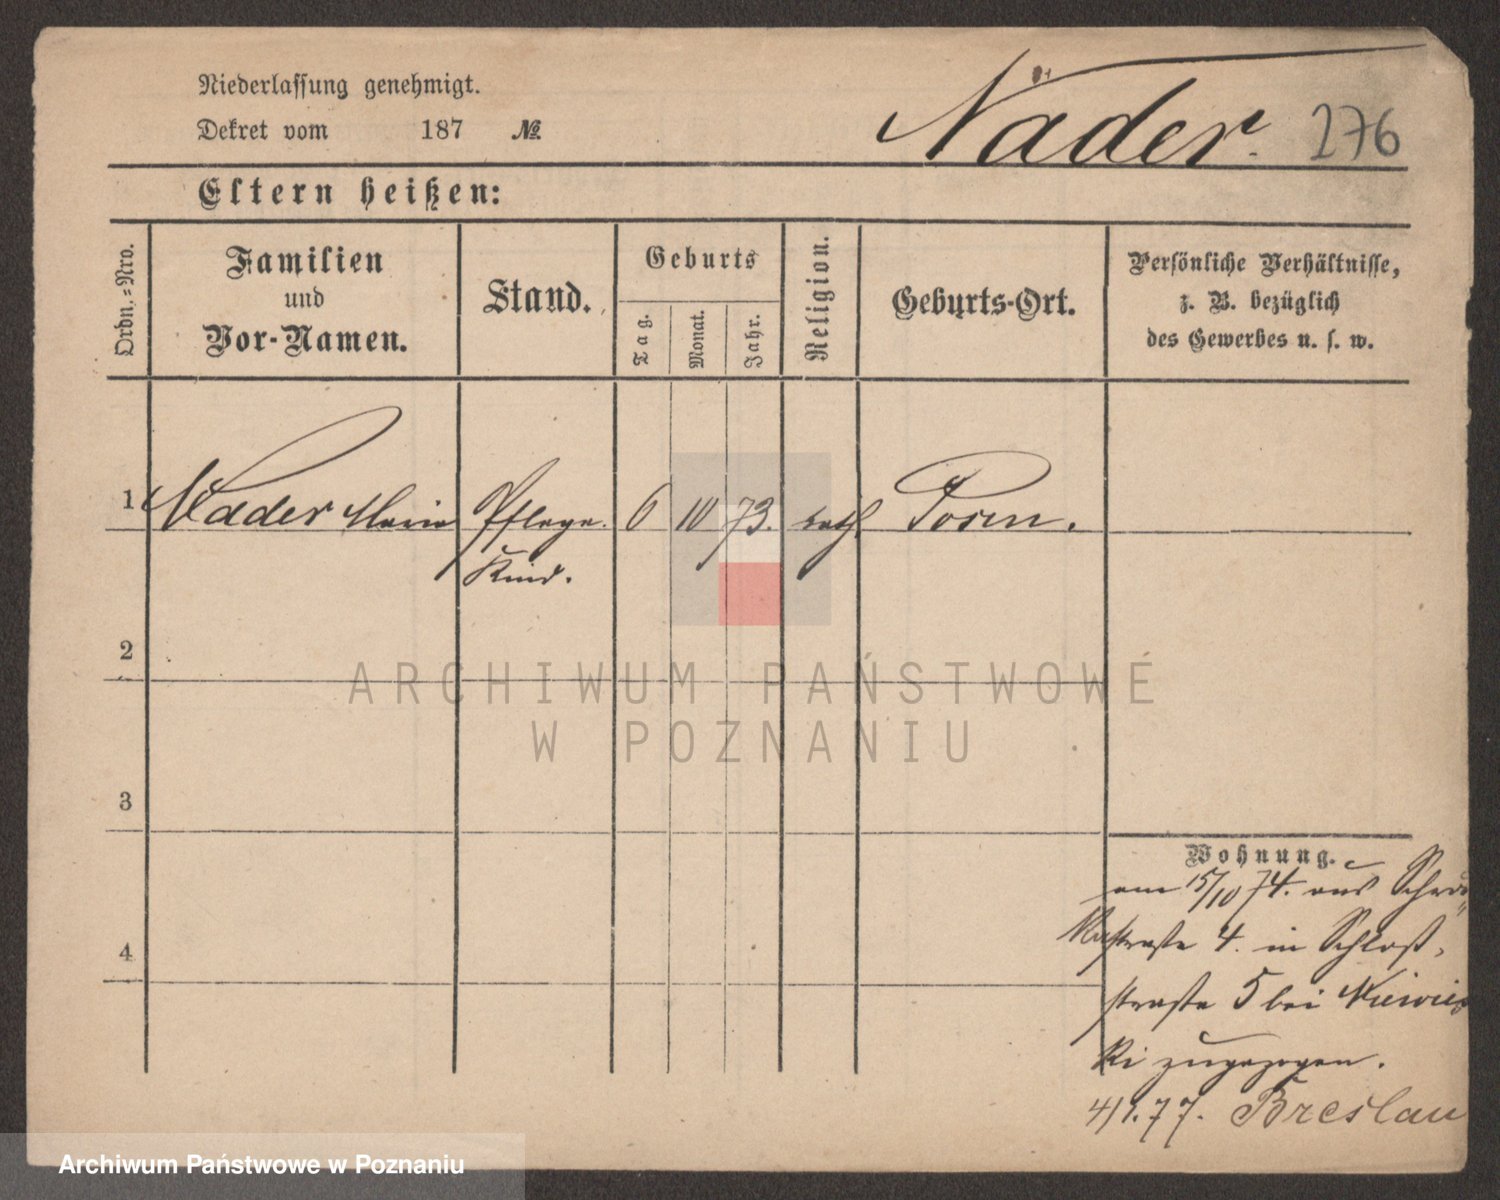 Niederlassung genehmigt.
Dekret vom 187 №
Näder. 276
Eltern heißen:
Ordn.-Nro.
Familien
und
Vor-Namen.
Stand.
Geburts
Tag.
Monat.
Jahr.
Religion.
Geburts-Ort.
Persönliche Verhältnisse,
z. B. bezüglich
des Gewerbes u. s. w.
1 Nader Maria Pflege- 6 10 73. kath Posen.
Kind.
2
ARCHIWUM PAŃSTWOWE
W POZNANIU
3
Wohnung.
am 15/10 74. aus
4
straße 4. in Schloß-
straße 5 bei
ki zugezogen.
4/1. 77. Breslau
Archiwum Państwowe w Poznaniu